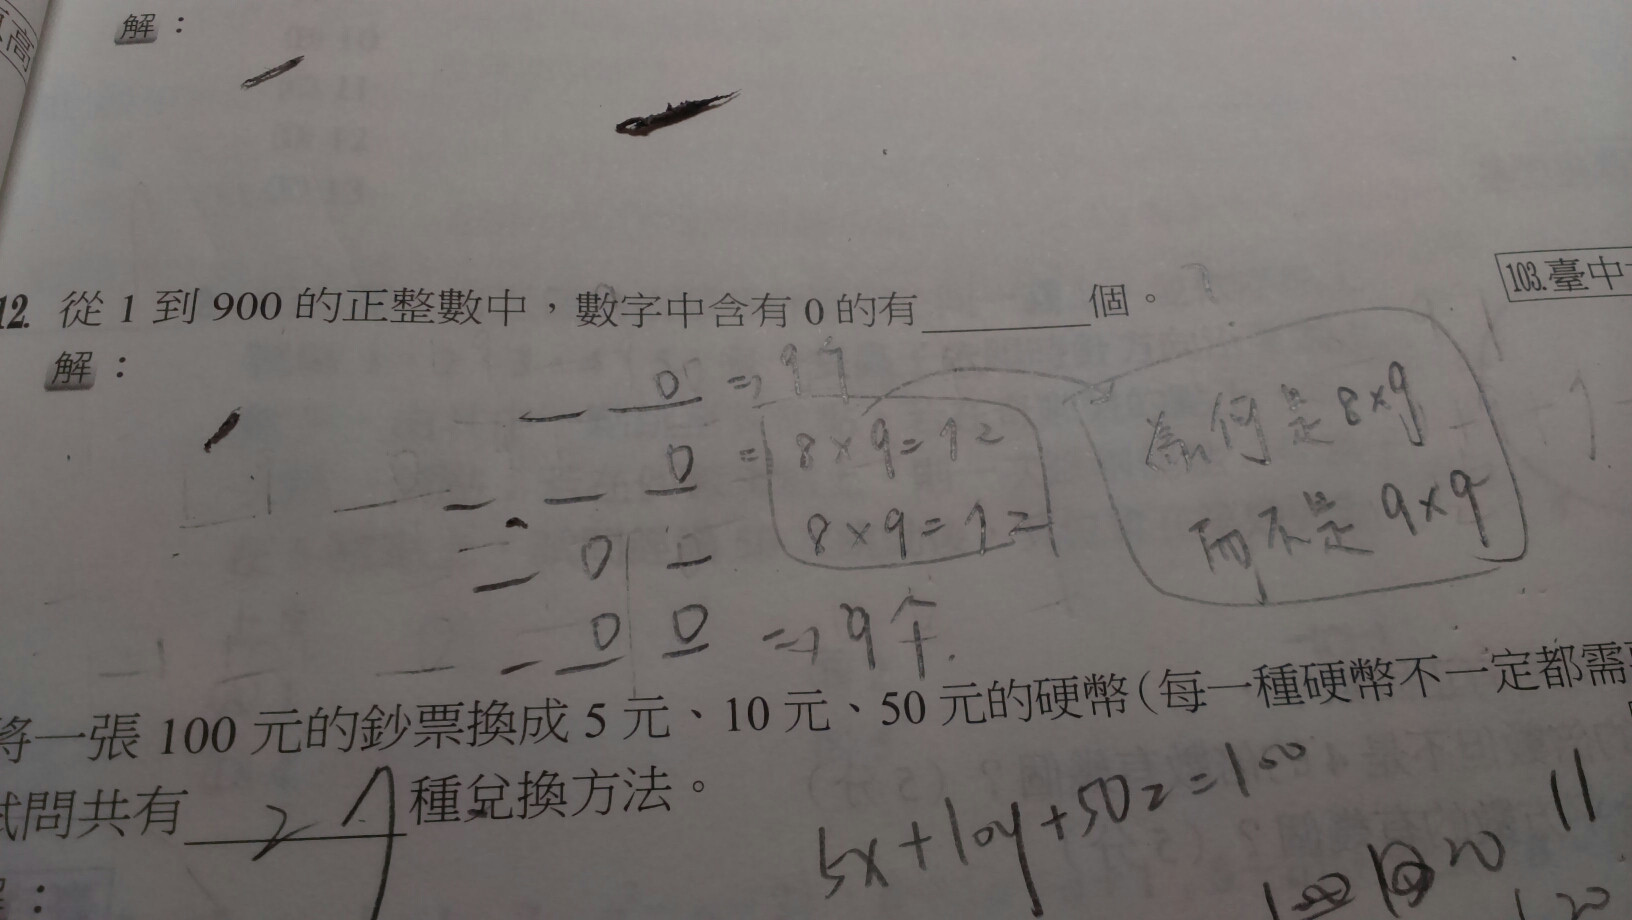 解：
12. 從 1 到 900 的正整數中，數字中含有 0 的有____個。
103.臺中
解：
_ 0 ⇒ 9個
_ _ 0 ⇒ 8×9=72
_ 0 _ 8×9=72
_ 0 0 ⇒ 9个
為何是 8×9
而不是 9×9
將一張 100 元的鈔票換成 5 元、10 元、50 元的硬幣（每一種硬幣不一定都需
試問共有____種兌換方法。
5x+10y+50z=100
11
：